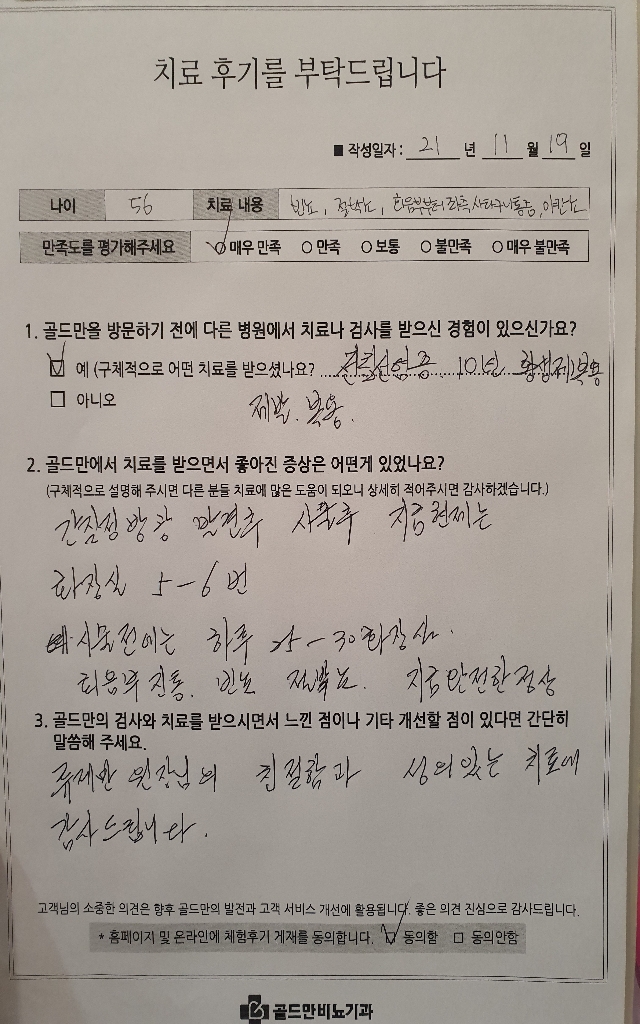 치료 후기를 부탁드립니다
■ 작성일자 : 21 년 11 월 19 일
나이 56 치료 내용 빈뇨, 절박뇨, 회음부부터 좌측 사타구니통증, 야간뇨
만족도를 평가해주세요 ○ 매우 만족 ○ 만족 ○ 보통 ○ 불만족 ○ 매우 불만족
1. 골드만을 방문하기 전에 다른 병원에서 치료나 검사를 받으신 경험이 있으신가요?
☑ 예 (구체적으로 어떤 치료를 받으셨나요? 전립선염증 10년 항생제복용
□ 아니오 재발. 복용.
2. 골드만에서 치료를 받으면서 좋아진 증상은 어떤게 있었나요?
(구체적으로 설명해 주시면 다른 분들 치료에 많은 도움이 되오니 상세히 적어주시면 감사하겠습니다.)
간질성방광 발견후 지금현재는
화장실 5-6번
전에는 하루 25-30 화장실.
회음부 진통. 빈뇨 절박뇨. 지금 완전한 정상
3. 골드만의 검사와 치료를 받으시면서 느낀 점이나 기타 개선할 점이 있다면 간단히
말씀해 주세요.
류제만 원장님의 친절함과 성의있는 치료에
감사드립니다.
고객님의 소중한 의견은 향후 골드만의 발전과 고객 서비스 개선에 활용됩니다. 좋은 의견 진심으로 감사드립니다.
* 홈페이지 및 온라인에 체험후기 게재를 동의합니다. ☑ 동의함 □ 동의안함
골드만비뇨기과